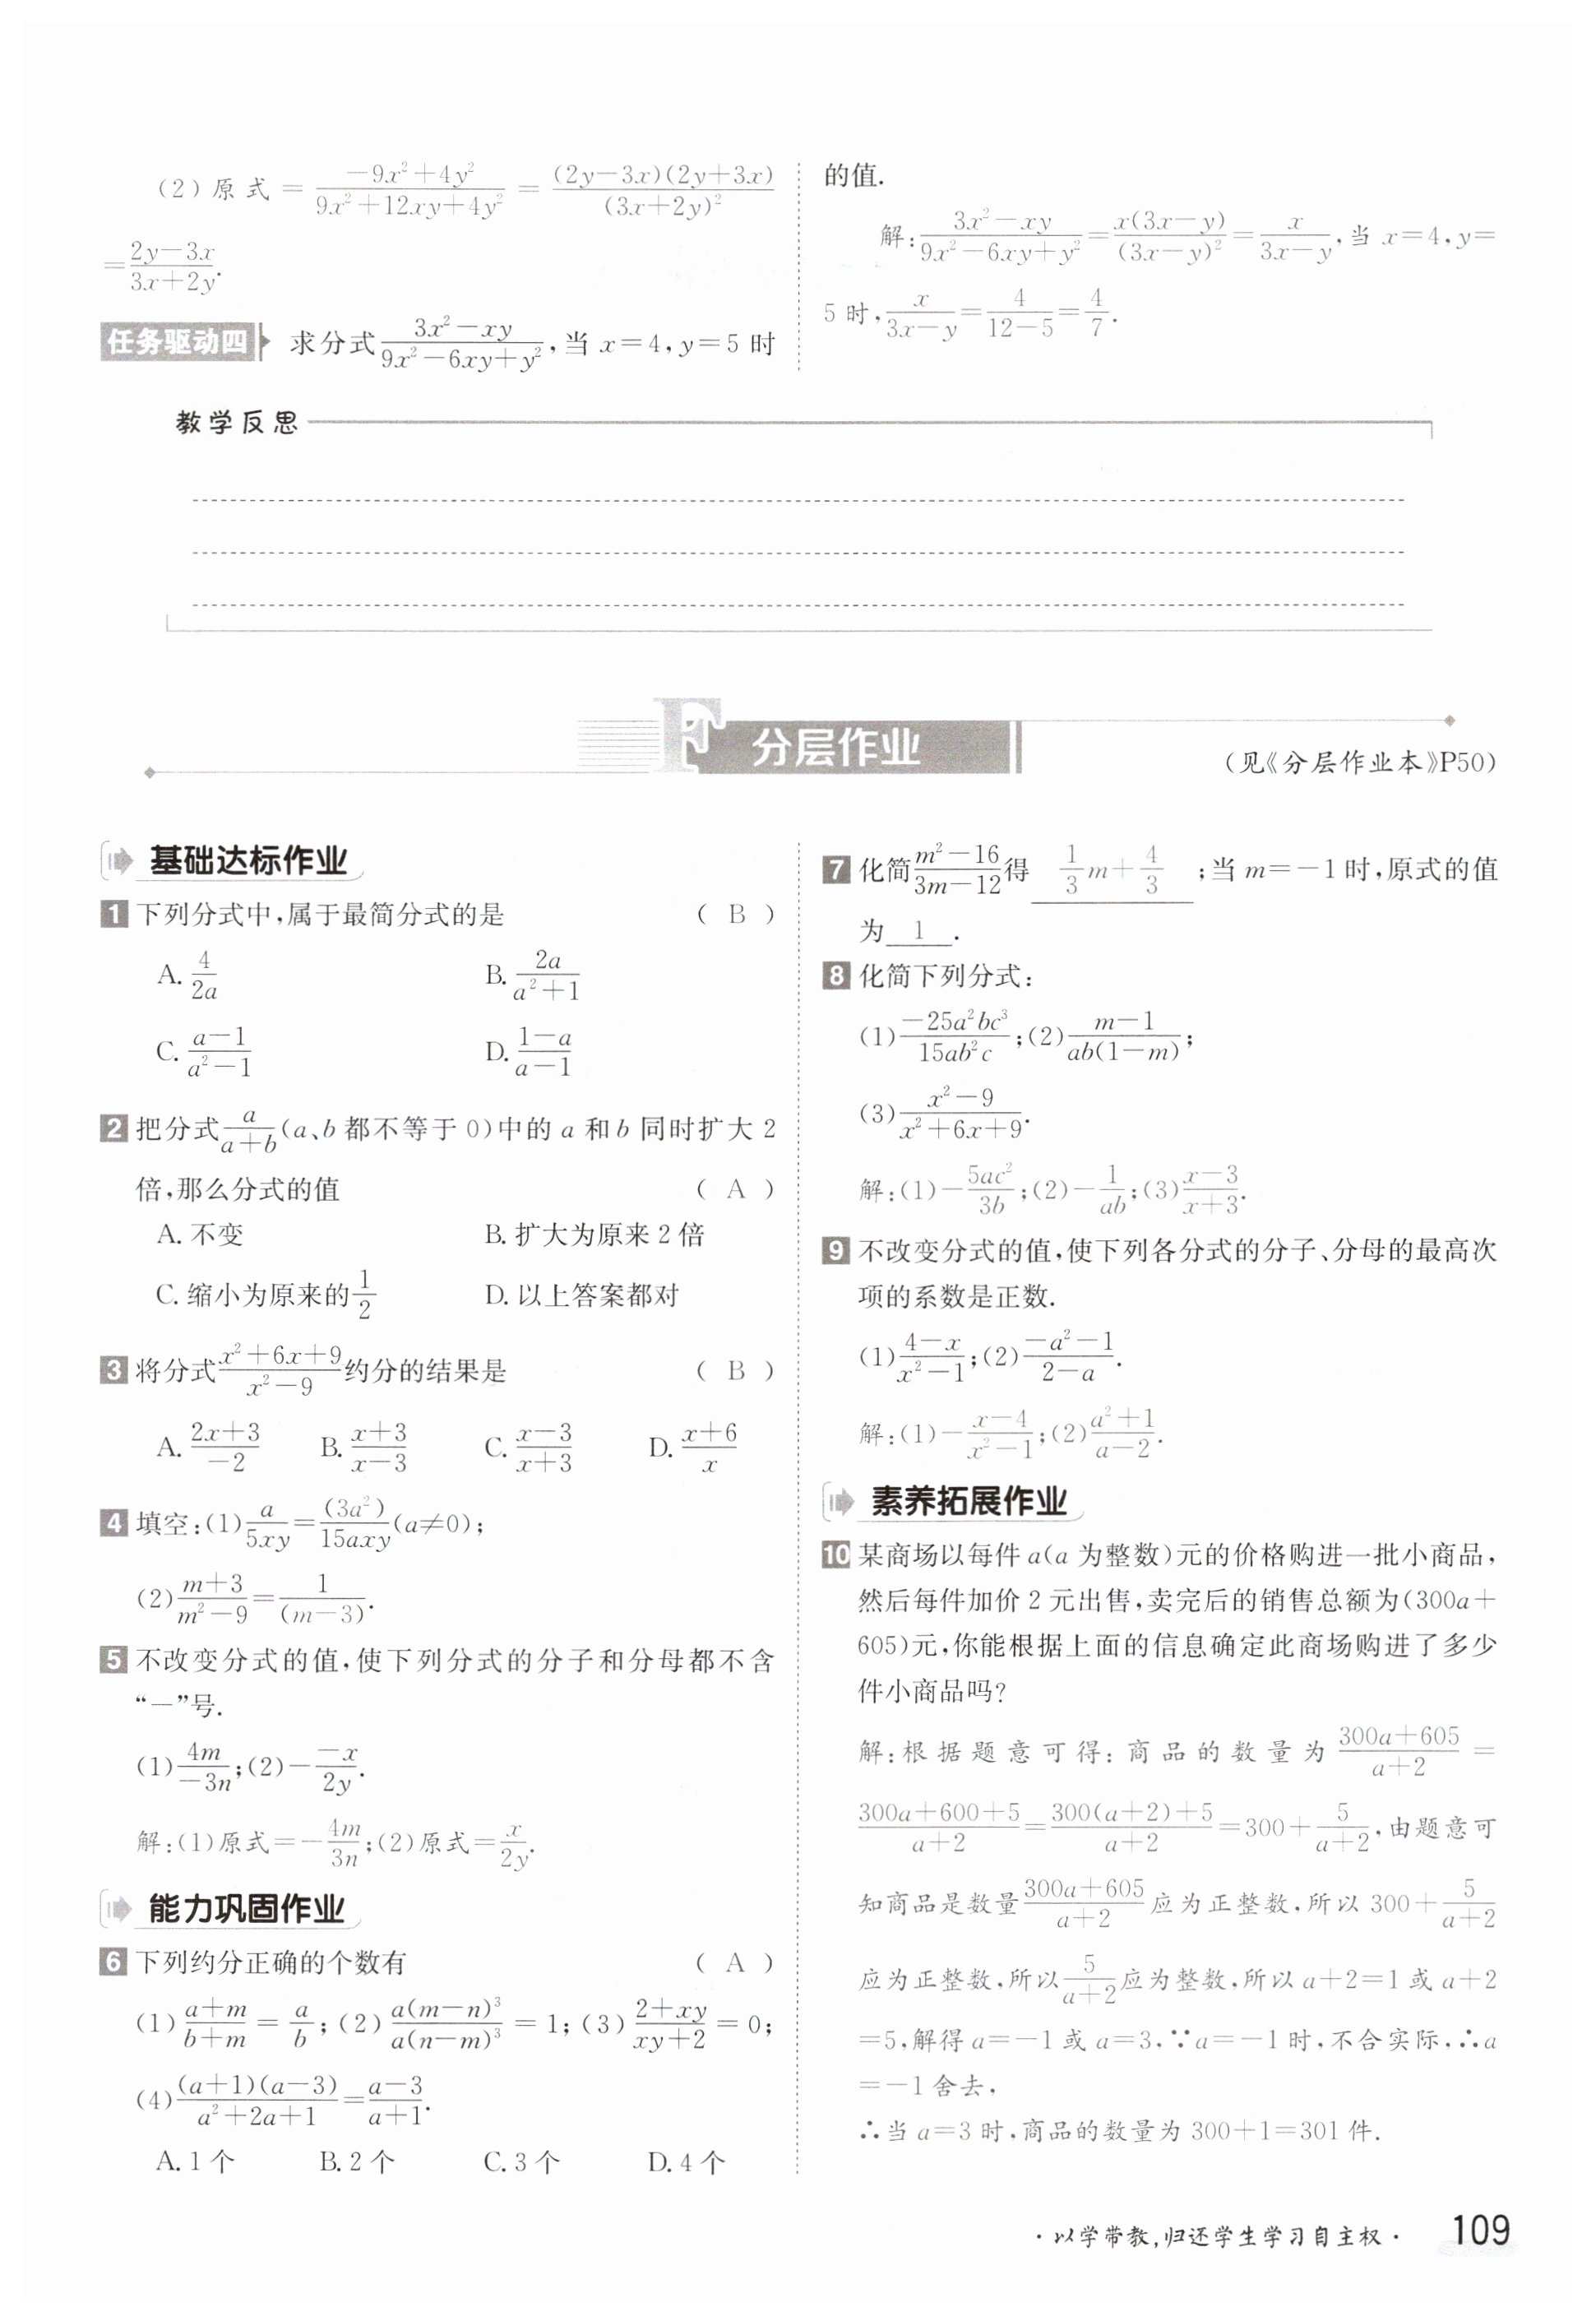 (2)原式=\frac{-9x²+4y²}{9x²+12xy+4y²}=\frac{(2y-3x)(2y+3x)}{(3x+2y)²}
=\frac{2y-3x}{3x+2y}.
任务驱动四 求分式\frac{3x²-xy}{9x²-6xy+y²},当 x=4,y=5 时
的值.
解:\frac{3x²-xy}{9x²-6xy+y²}=\frac{x(3x-y)}{(3x-y)²}=\frac{x}{3x-y},当 x=4,y=
5 时,\frac{x}{3x-y}=\frac{4}{12-5}=\frac{4}{7}.
教学反思
F 分层作业
(见《分层作业本》P50)
基础达标作业
1 下列分式中,属于最简分式的是 ( B )
A. \frac{4}{2a} B. \frac{2a}{a²+1}
C. \frac{a-1}{a²-1} D. \frac{1-a}{a-1}
2 把分式\frac{a}{a+b}(a、b 都不等于 0)中的 a 和 b 同时扩大 2
倍,那么分式的值 ( A )
A. 不变 B. 扩大为原来 2 倍
C. 缩小为原来的\frac{1}{2} D. 以上答案都对
3 将分式\frac{x²+6x+9}{x²-9}约分的结果是 ( B )
A. \frac{2x+3}{-2} B. \frac{x+3}{x-3} C. \frac{x-3}{x+3} D. \frac{x+6}{x}
4 填空:(1)\frac{a}{5xy}=\frac{(3a²)}{15axy}(a≠0);
(2)\frac{m+3}{m²-9}=\frac{1}{(m-3)}.
5 不改变分式的值,使下列分式的分子和分母都不含
“—”号.
(1)\frac{4m}{-3n};(2)-\frac{-x}{2y}.
解:(1)原式=-\frac{4m}{3n};(2)原式=\frac{x}{2y}.
能力巩固作业
6 下列约分正确的个数有 ( A )
(1)\frac{a+m}{b+m}=\frac{a}{b};(2)\frac{a(m-n)³}{a(n-m)³}=1;(3)\frac{2+xy}{xy+2}=0;
(4)\frac{(a+1)(a-3)}{a²+2a+1}=\frac{a-3}{a+1}.
A. 1 个 B. 2 个 C. 3 个 D. 4 个
7 化简\frac{m²-16}{3m-12}得 \frac{1}{3}m+\frac{4}{3} ;当 m=-1 时,原式的值
为 1 .
8 化简下列分式:
(1)\frac{-25a²bc³}{15ab²c};(2)\frac{m-1}{ab(1-m)};
(3)\frac{x²-9}{x²+6x+9}.
解:(1)-\frac{5ac²}{3b};(2)-\frac{1}{ab};(3)\frac{x-3}{x+3}.
9 不改变分式的值,使下列各分式的分子、分母的最高次
项的系数是正数.
(1)\frac{4-x}{x²-1};(2)\frac{-a²-1}{2-a}.
解:(1)-\frac{x-4}{x²-1};(2)\frac{a²+1}{a-2}.
素养拓展作业
10 某商场以每件 a(a 为整数)元的价格购进一批小商品,
然后每件加价 2 元出售,卖完后的销售总额为(300a+
605)元,你能根据上面的信息确定此商场购进了多少
件小商品吗?
解:根据题意可得:商品的数量为\frac{300a+605}{a+2}=
\frac{300a+600+5}{a+2}=\frac{300(a+2)+5}{a+2}=300+\frac{5}{a+2},由题意可
知商品是数量\frac{300a+605}{a+2}应为正整数,所以 300+\frac{5}{a+2}
应为正整数,所以\frac{5}{a+2}应为整数,所以 a+2=1 或 a+2
=5,解得 a=-1 或 a=3.∵a=-1 时,不合实际,∴a
=-1 舍去,
∴当 a=3 时,商品的数量为 300+1=301 件.
·以学带教,归还学生学习自主权· 109